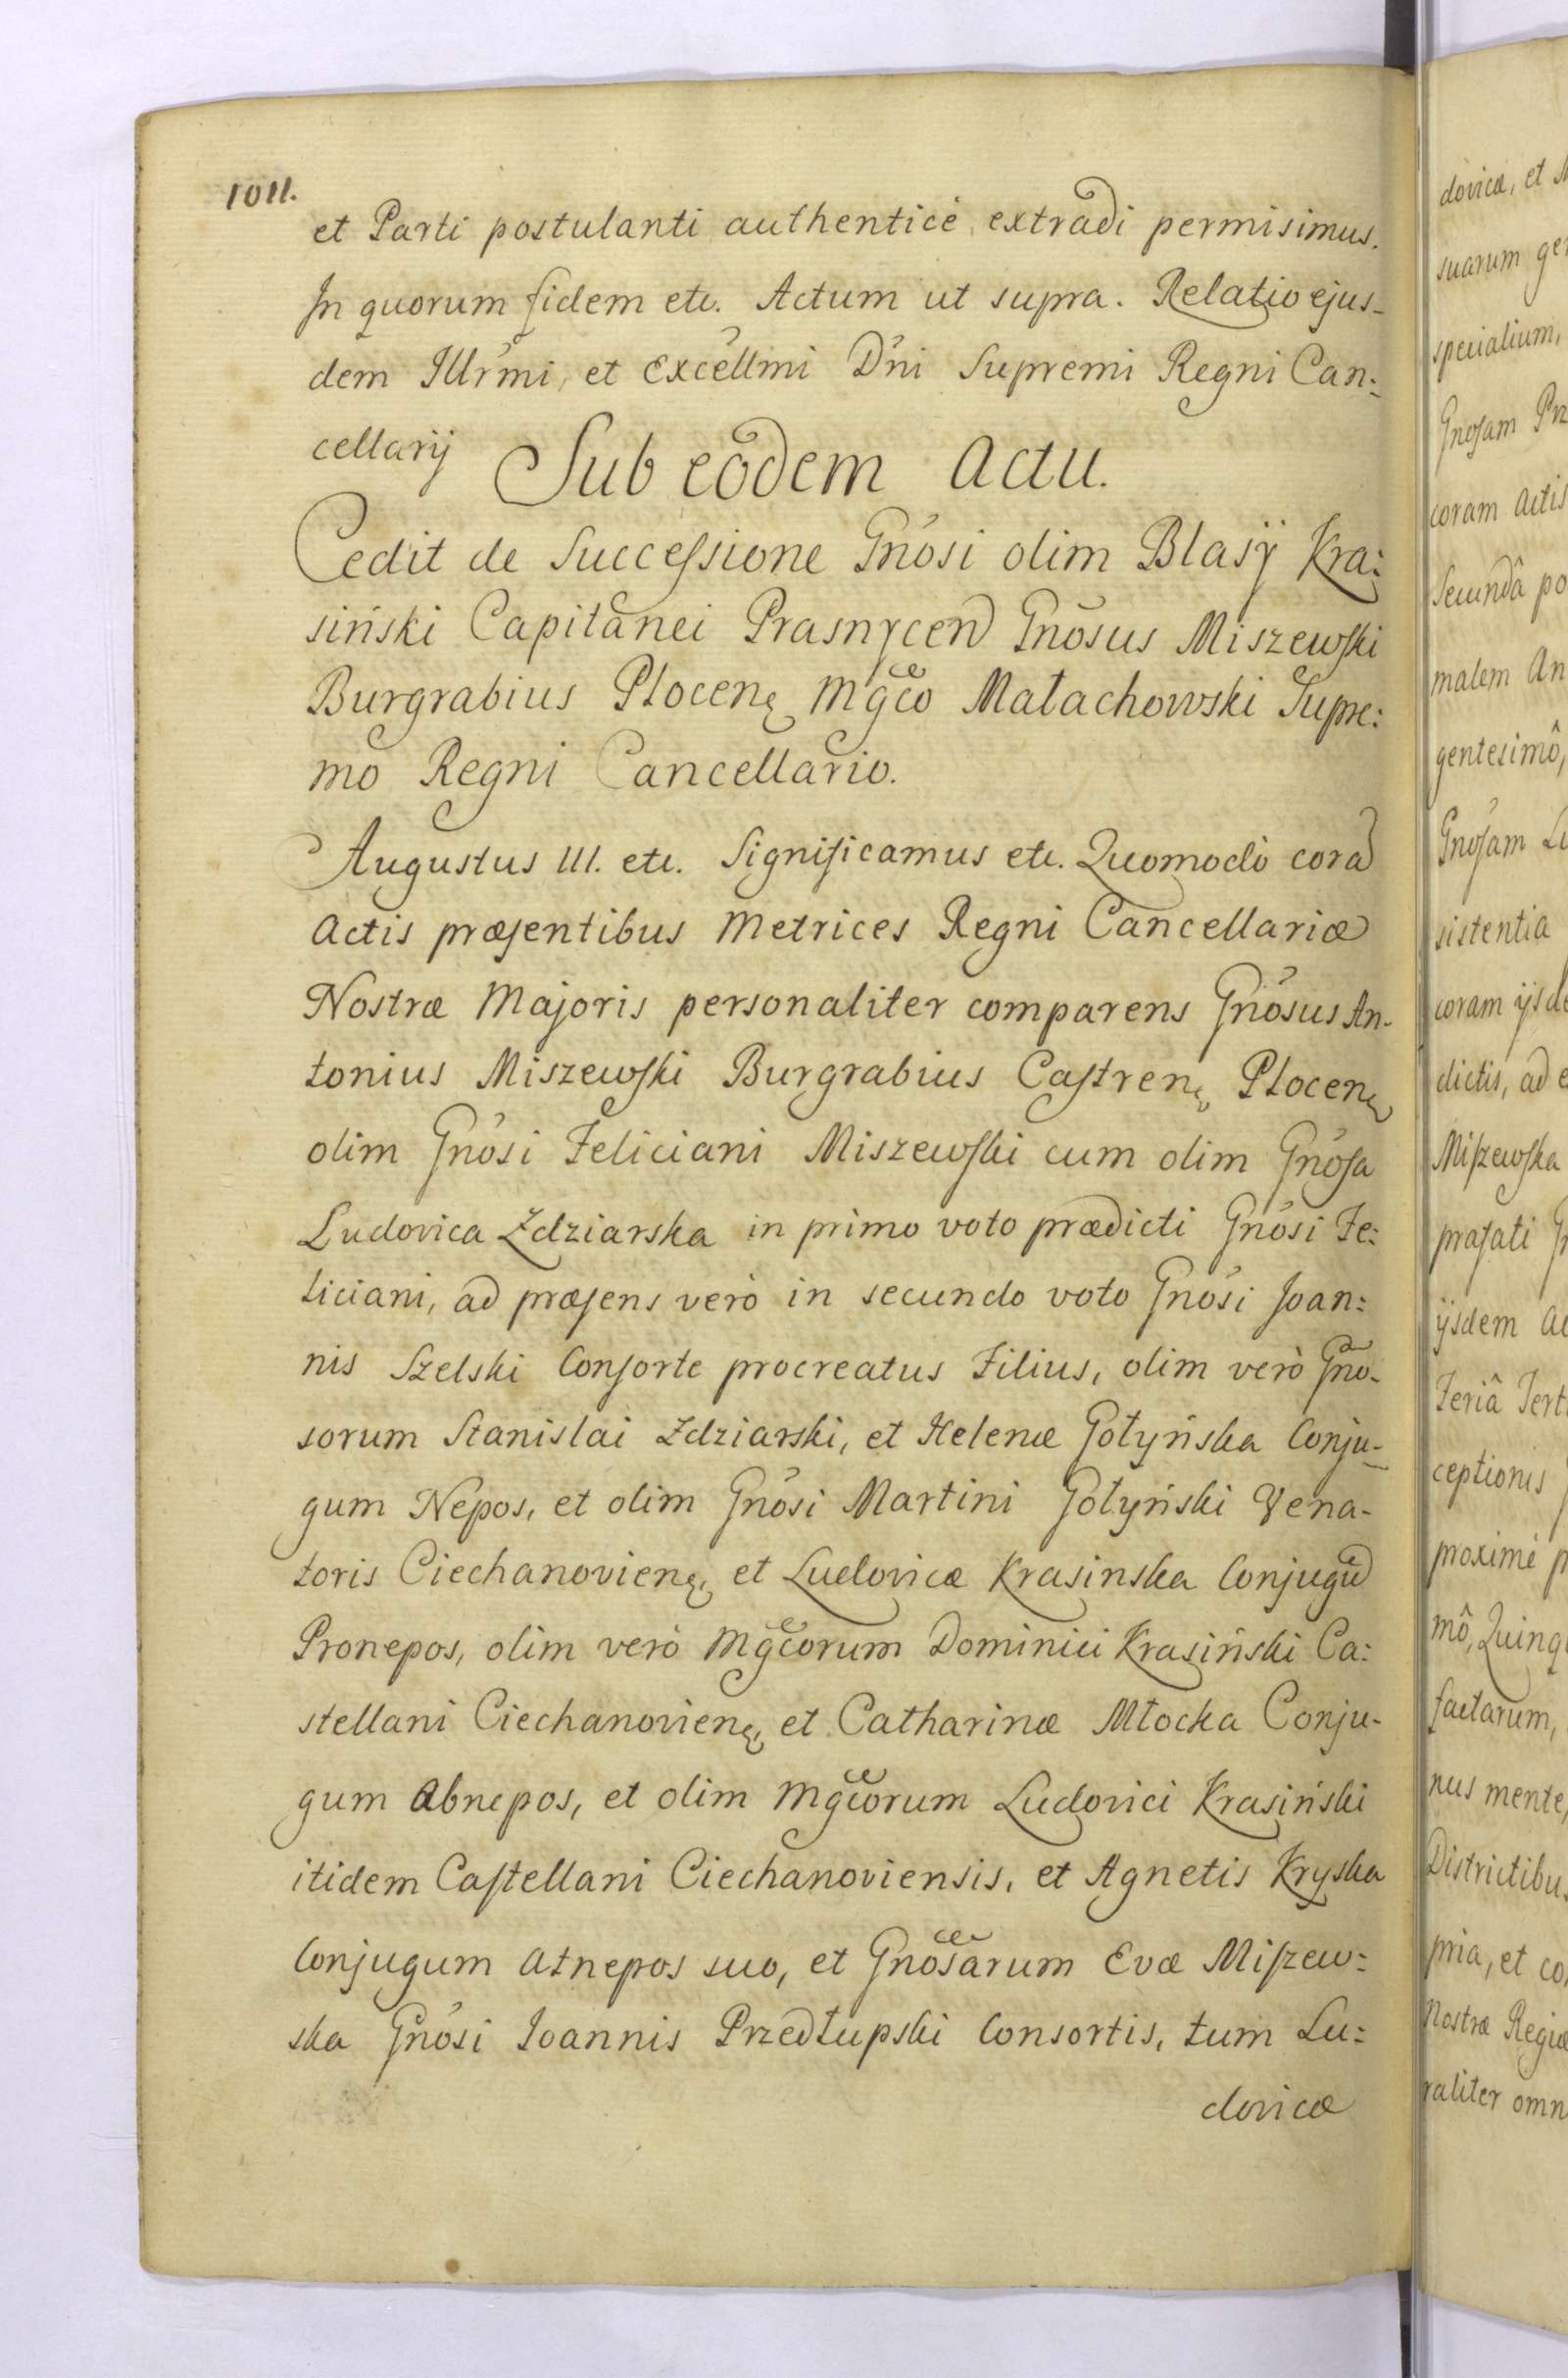 1011.
et Parti postulanti authenticè extradi permisimus.
In quorum fidem etc. Actum ut supra. Relatio ejus-
dem Illr̃mi, et Excell̃mi Dñi Supremi Regni Can:
cellarij
Sub eodem Actu.
Cedit de Successione Gñosi olim Blasij Kra:
siński Capitanei Prasnycen̄ Gñosus Miszewski
Burgrabius Płocenę Mgc̃o Małachowski Supre:
mo Regni Cancellario.
Augustus III. etc. Significamus etc. Quomodò corã
Actis præsentibus Metrices Regni Cancellariæ
Nostræ Majoris personaliter comparens Gñosus An-
tonius Miszewski Burgrabius Castrenę Płocenę
olim Gñosi Feliciani Miszewski cum olim Gñosa
Ludovica Zdziarska in primo voto prædicti Gñosi Fe:
liciani, ad præsens verò in secundo voto Gñosi Joan:
nis Szelski Consorte procreatus Filius, olim verò Gño-
sorum Stanislai Zdziarski, et Helenæ Gołyńska Conju-
gum Nepos, et olim Gñosi Martini Gołyński Vena-
toris Ciechanovienę, et Ludovicæ Krasinska Conjugũ
Pronepos, olim verò Mgc̃orum Dominici Krasiński Ca:
stellani Ciechanovienę, et Catharinæ Młocka Conju-
gum Abnepos, et olim Mgc̃orum Ludovici Krasiński
itidem Castellani Ciechanoviensis, et Agnetis Kryska
Conjugum Atnepos suo, et Gñosarum Evæ Miszew:
ska Gñosi Joannis Przedłupski Consortis, tum Lu:
dovicæ
dovicæ, et
suarum
specialium,
Gnosam
coram Actis
Secundâ
malem
gentesimô,
Gñosam
sistentia
coram
dictis, ad
Miszewska
præfati
ijsdem
Feriâ
ceptionis
proximè
mô,
factarum,
mente,
pria, et
Nostræ Regiæ